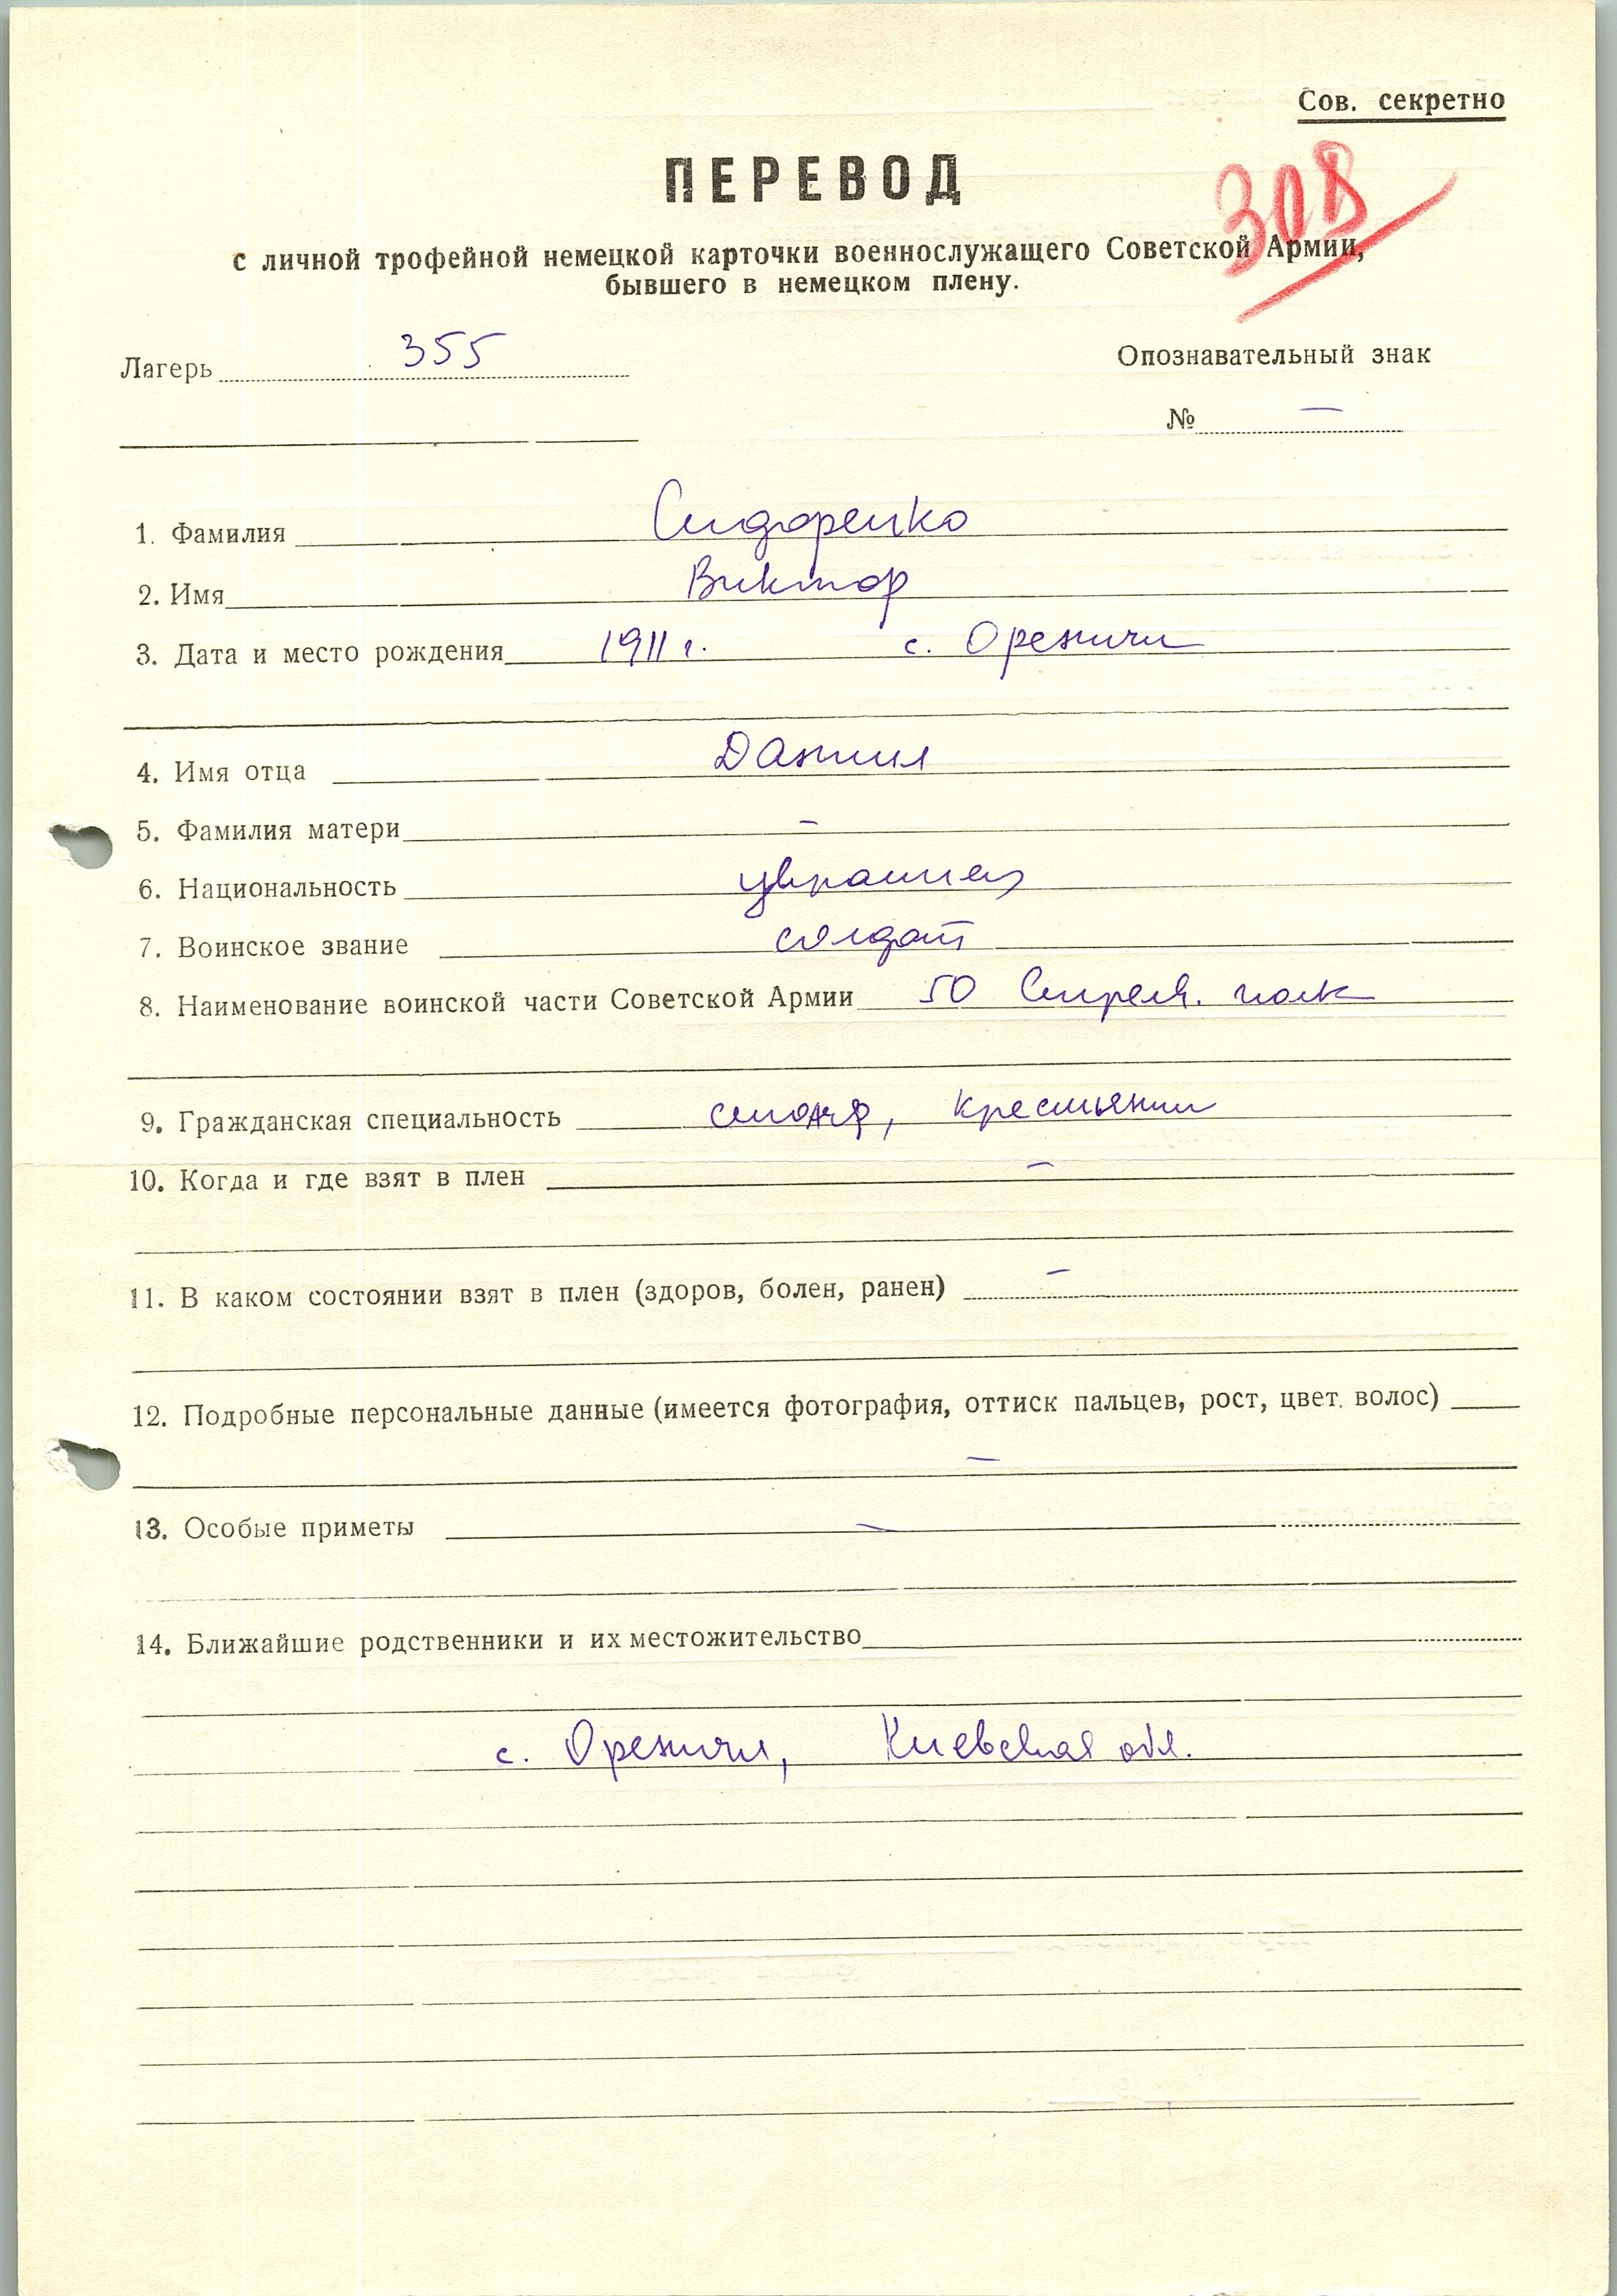 Сов. секретно
ПЕРЕВОД
308
с личной трофейной немецкой карточки военнослужащего Советской Армии,
бывшего в немецком плену.
Лагерь 355
Опознавательный знак
№ —
1. Фамилия Сидоренко
2. Имя Виктор
3. Дата и место рождения 1911 г. с. Орежичи
4. Имя отца Данил
5. Фамилия матери —
6. Национальность украинец
7. Воинское звание солдат
8. Наименование воинской части Советской Армии 50 Стрелк. полк
9. Гражданская специальность столяр, крестьянин
10. Когда и где взят в плен —
11. В каком состоянии взят в плен (здоров, болен, ранен) —
12. Подробные персональные данные (имеется фотография, оттиск пальцев, рост, цвет. волос)
—
13. Особые приметы —
14. Ближайшие родственники и их местожительство
с. Орежичи, Киевская обл.